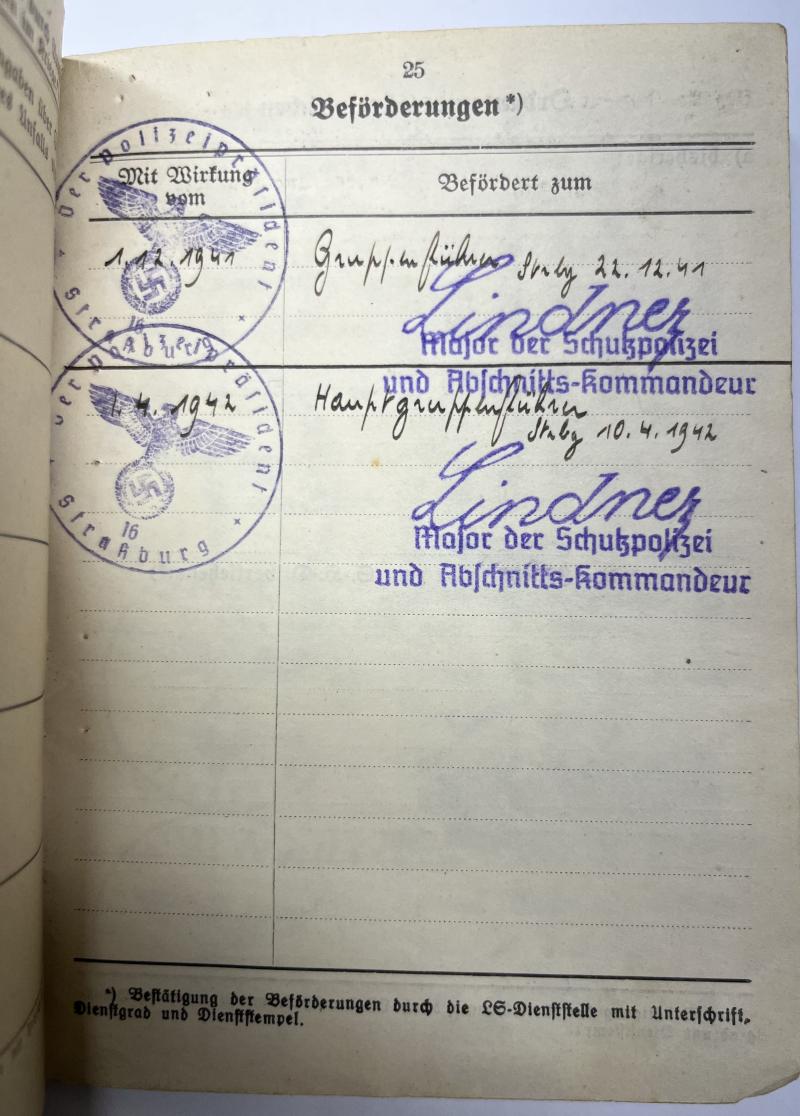 25
Beförderungen*)
Mit Wirkung vom
Befördert zum
Der Polizeipräsident
Straßburg
16
1.12.1941
Gruppenführer Strbg 22.12.41
Lindner
Major der Schutzpolizei
und Abschnitts-Kommandeur
Der Polizeipräsident
Straßburg
16
1.4.1942
Hauptgruppenführer
Strbg 10.4.1942
Lindner
Major der Schutzpolizei
und Abschnitts-Kommandeur
*) Bestätigung der Beförderungen durch die LS-Dienststelle mit Unterschrift,
Dienstgrad und Dienststempel.